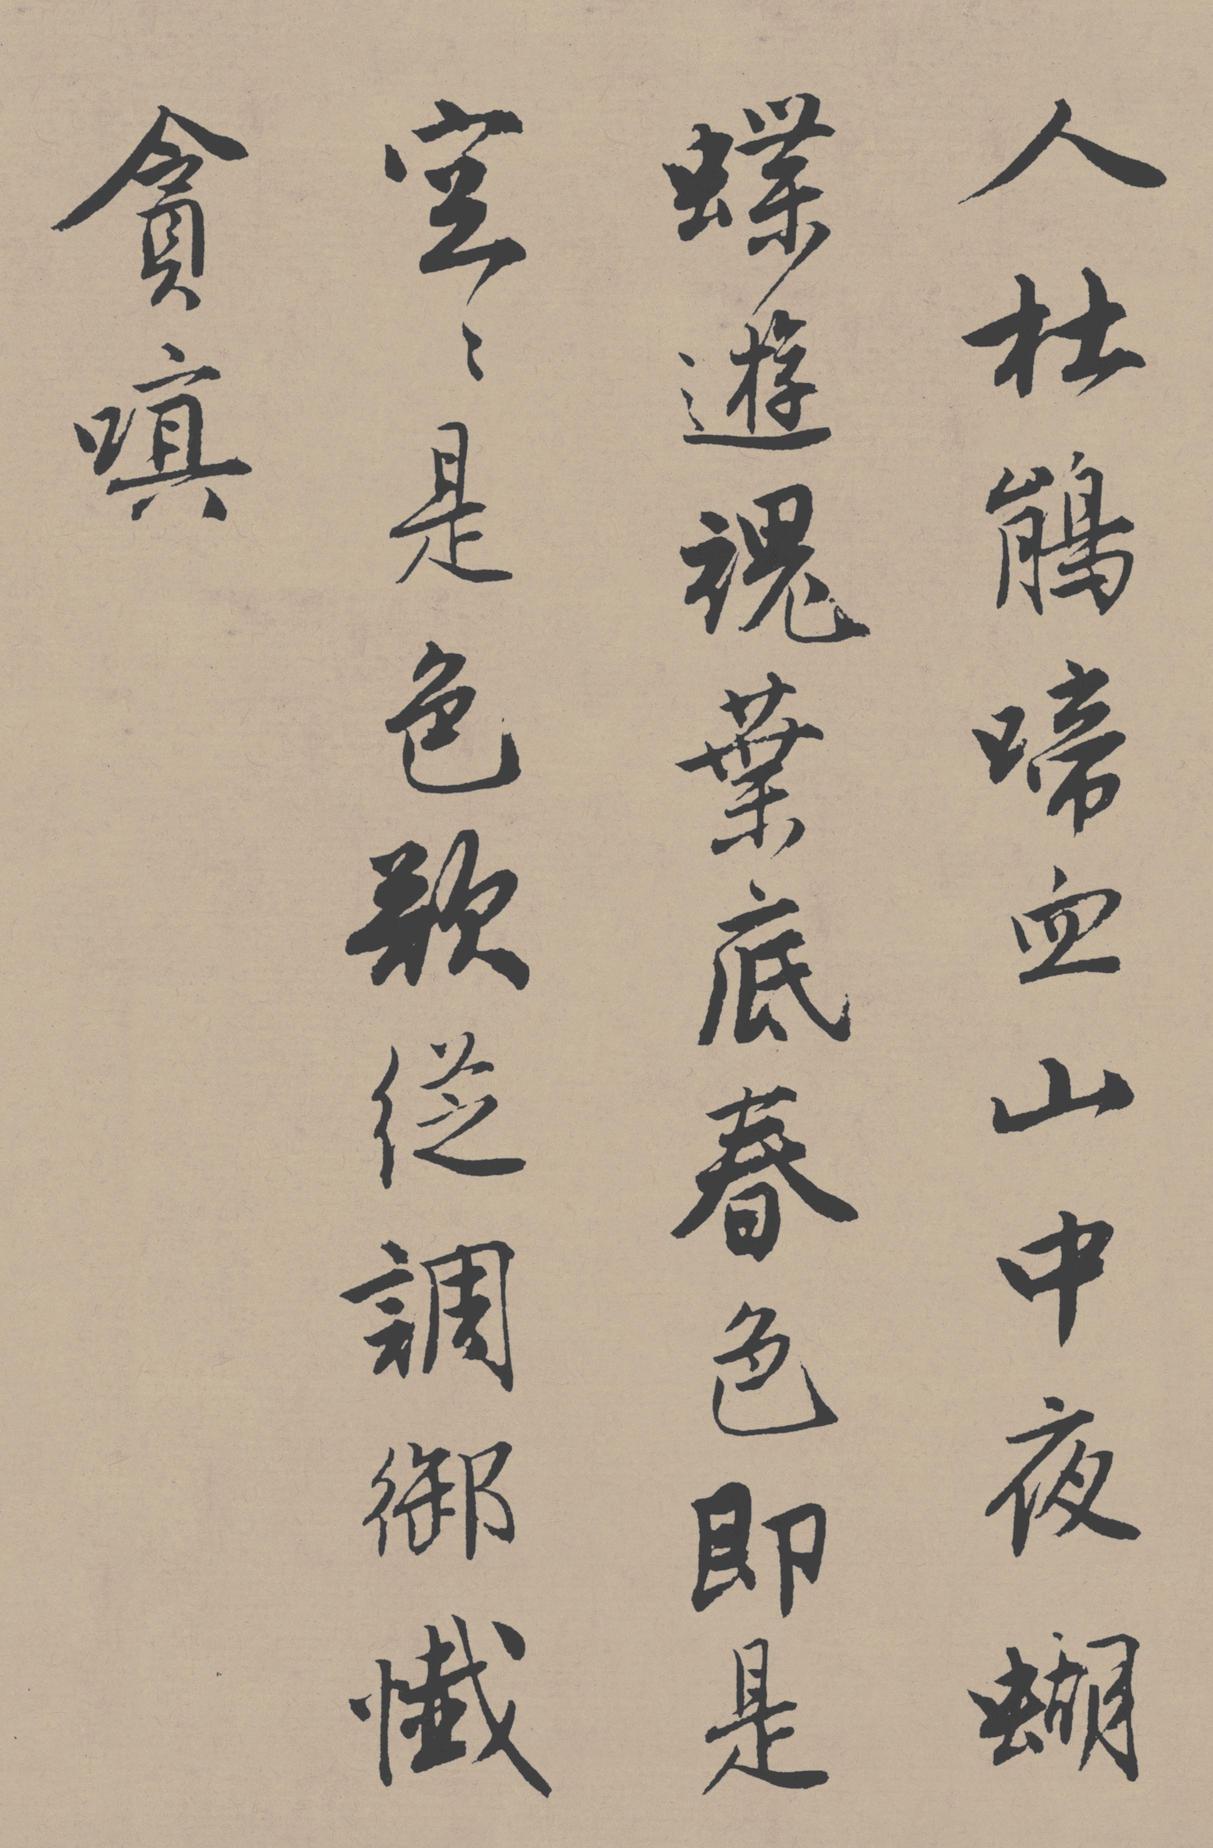 人杜鵑啼血山中夜蝴
蝶遊魂葉底春色即是
空々是色歌從調御懺
貪嗔